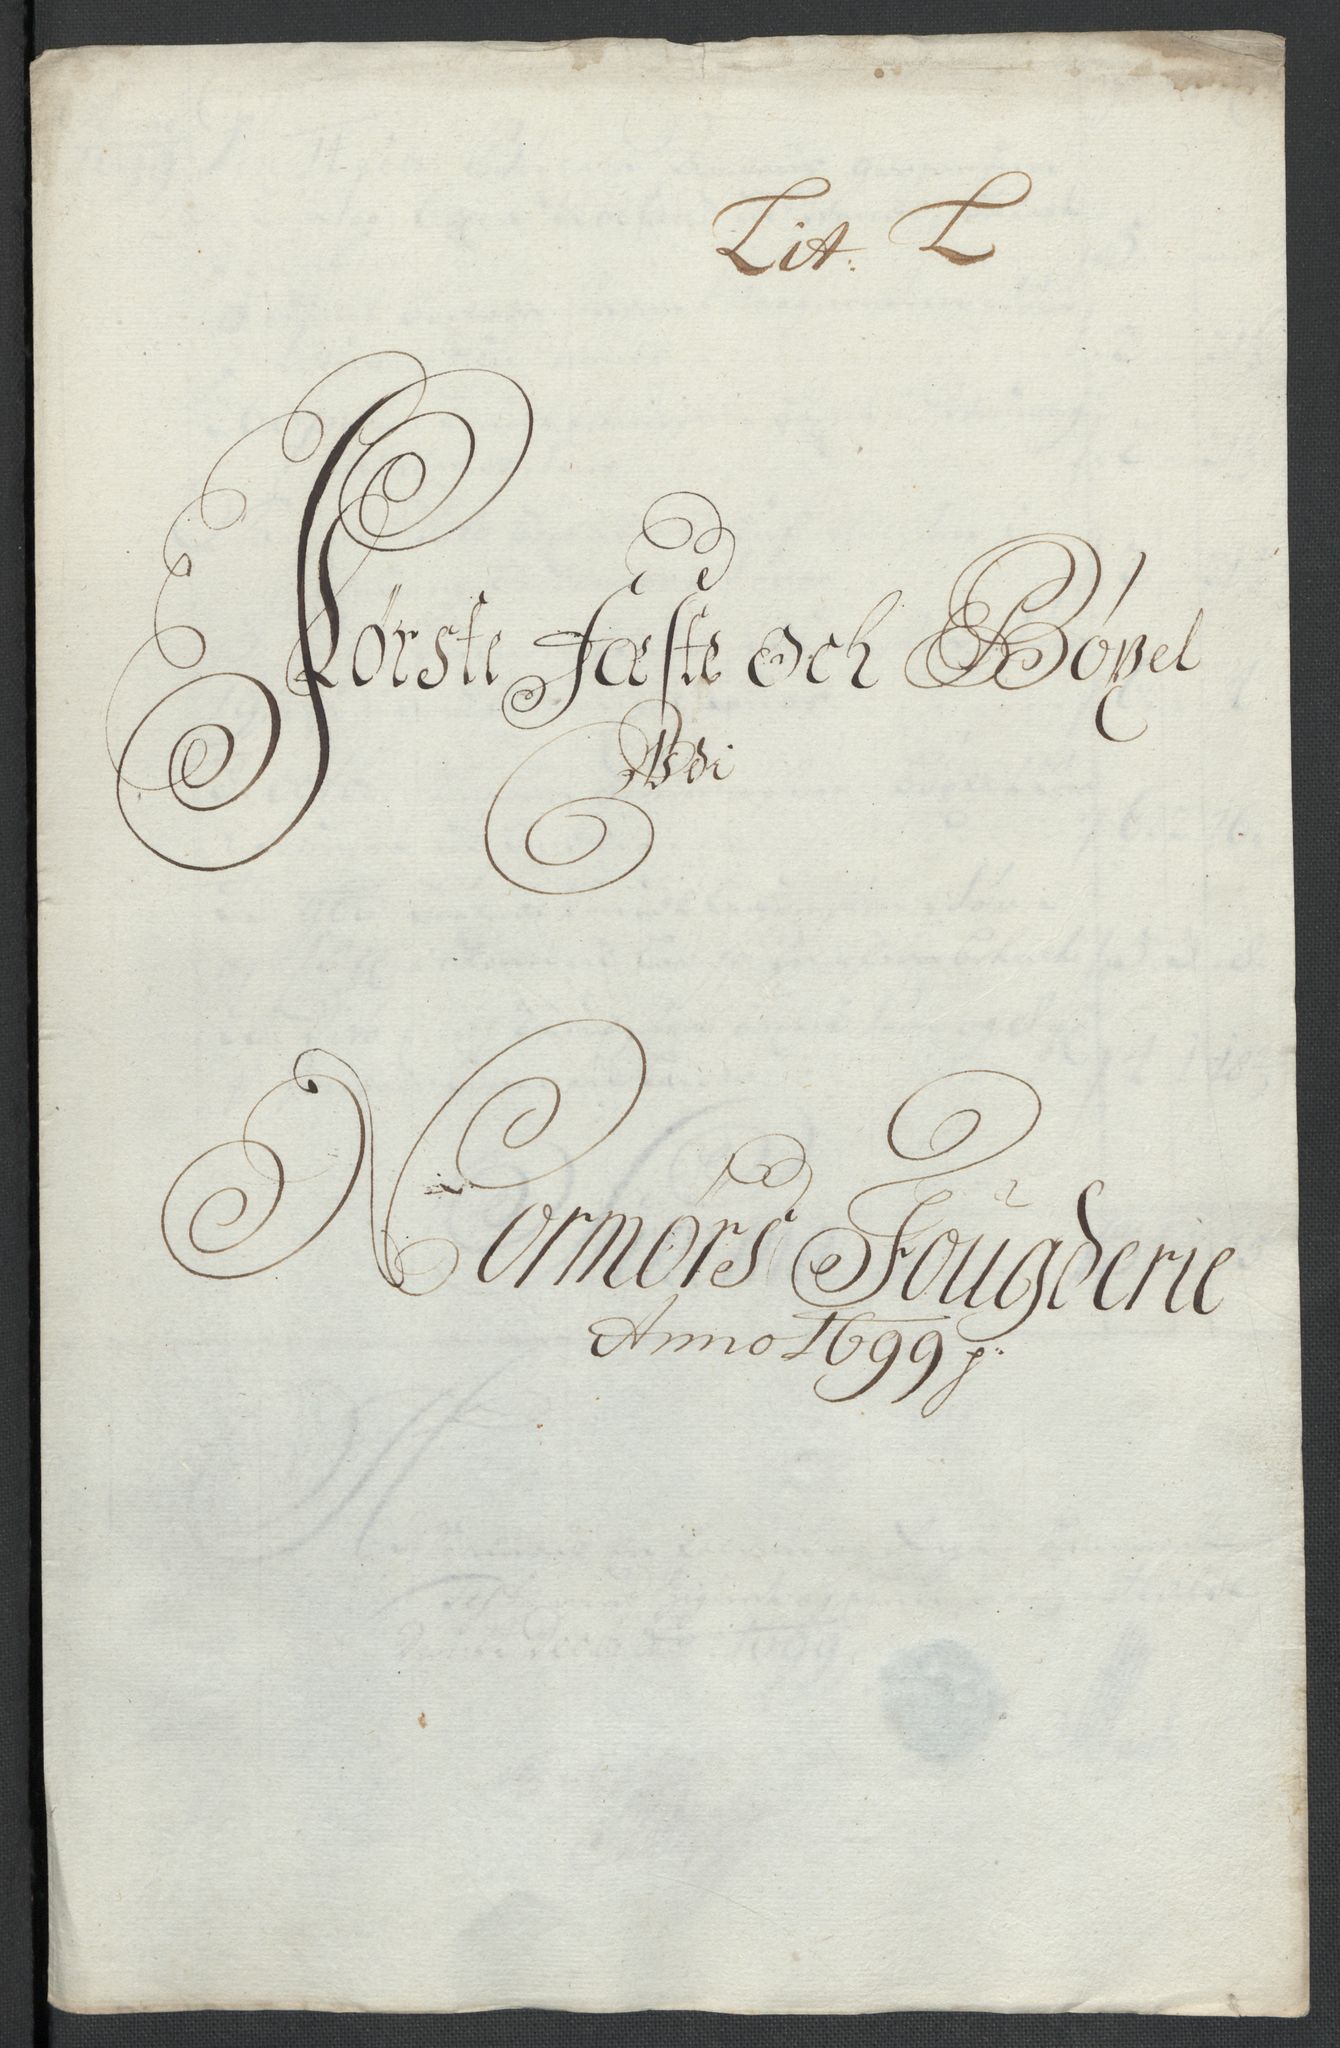 Lit: L
Første fæste och Bøxel
Udi
Normørs Fougderie
Anno 1699